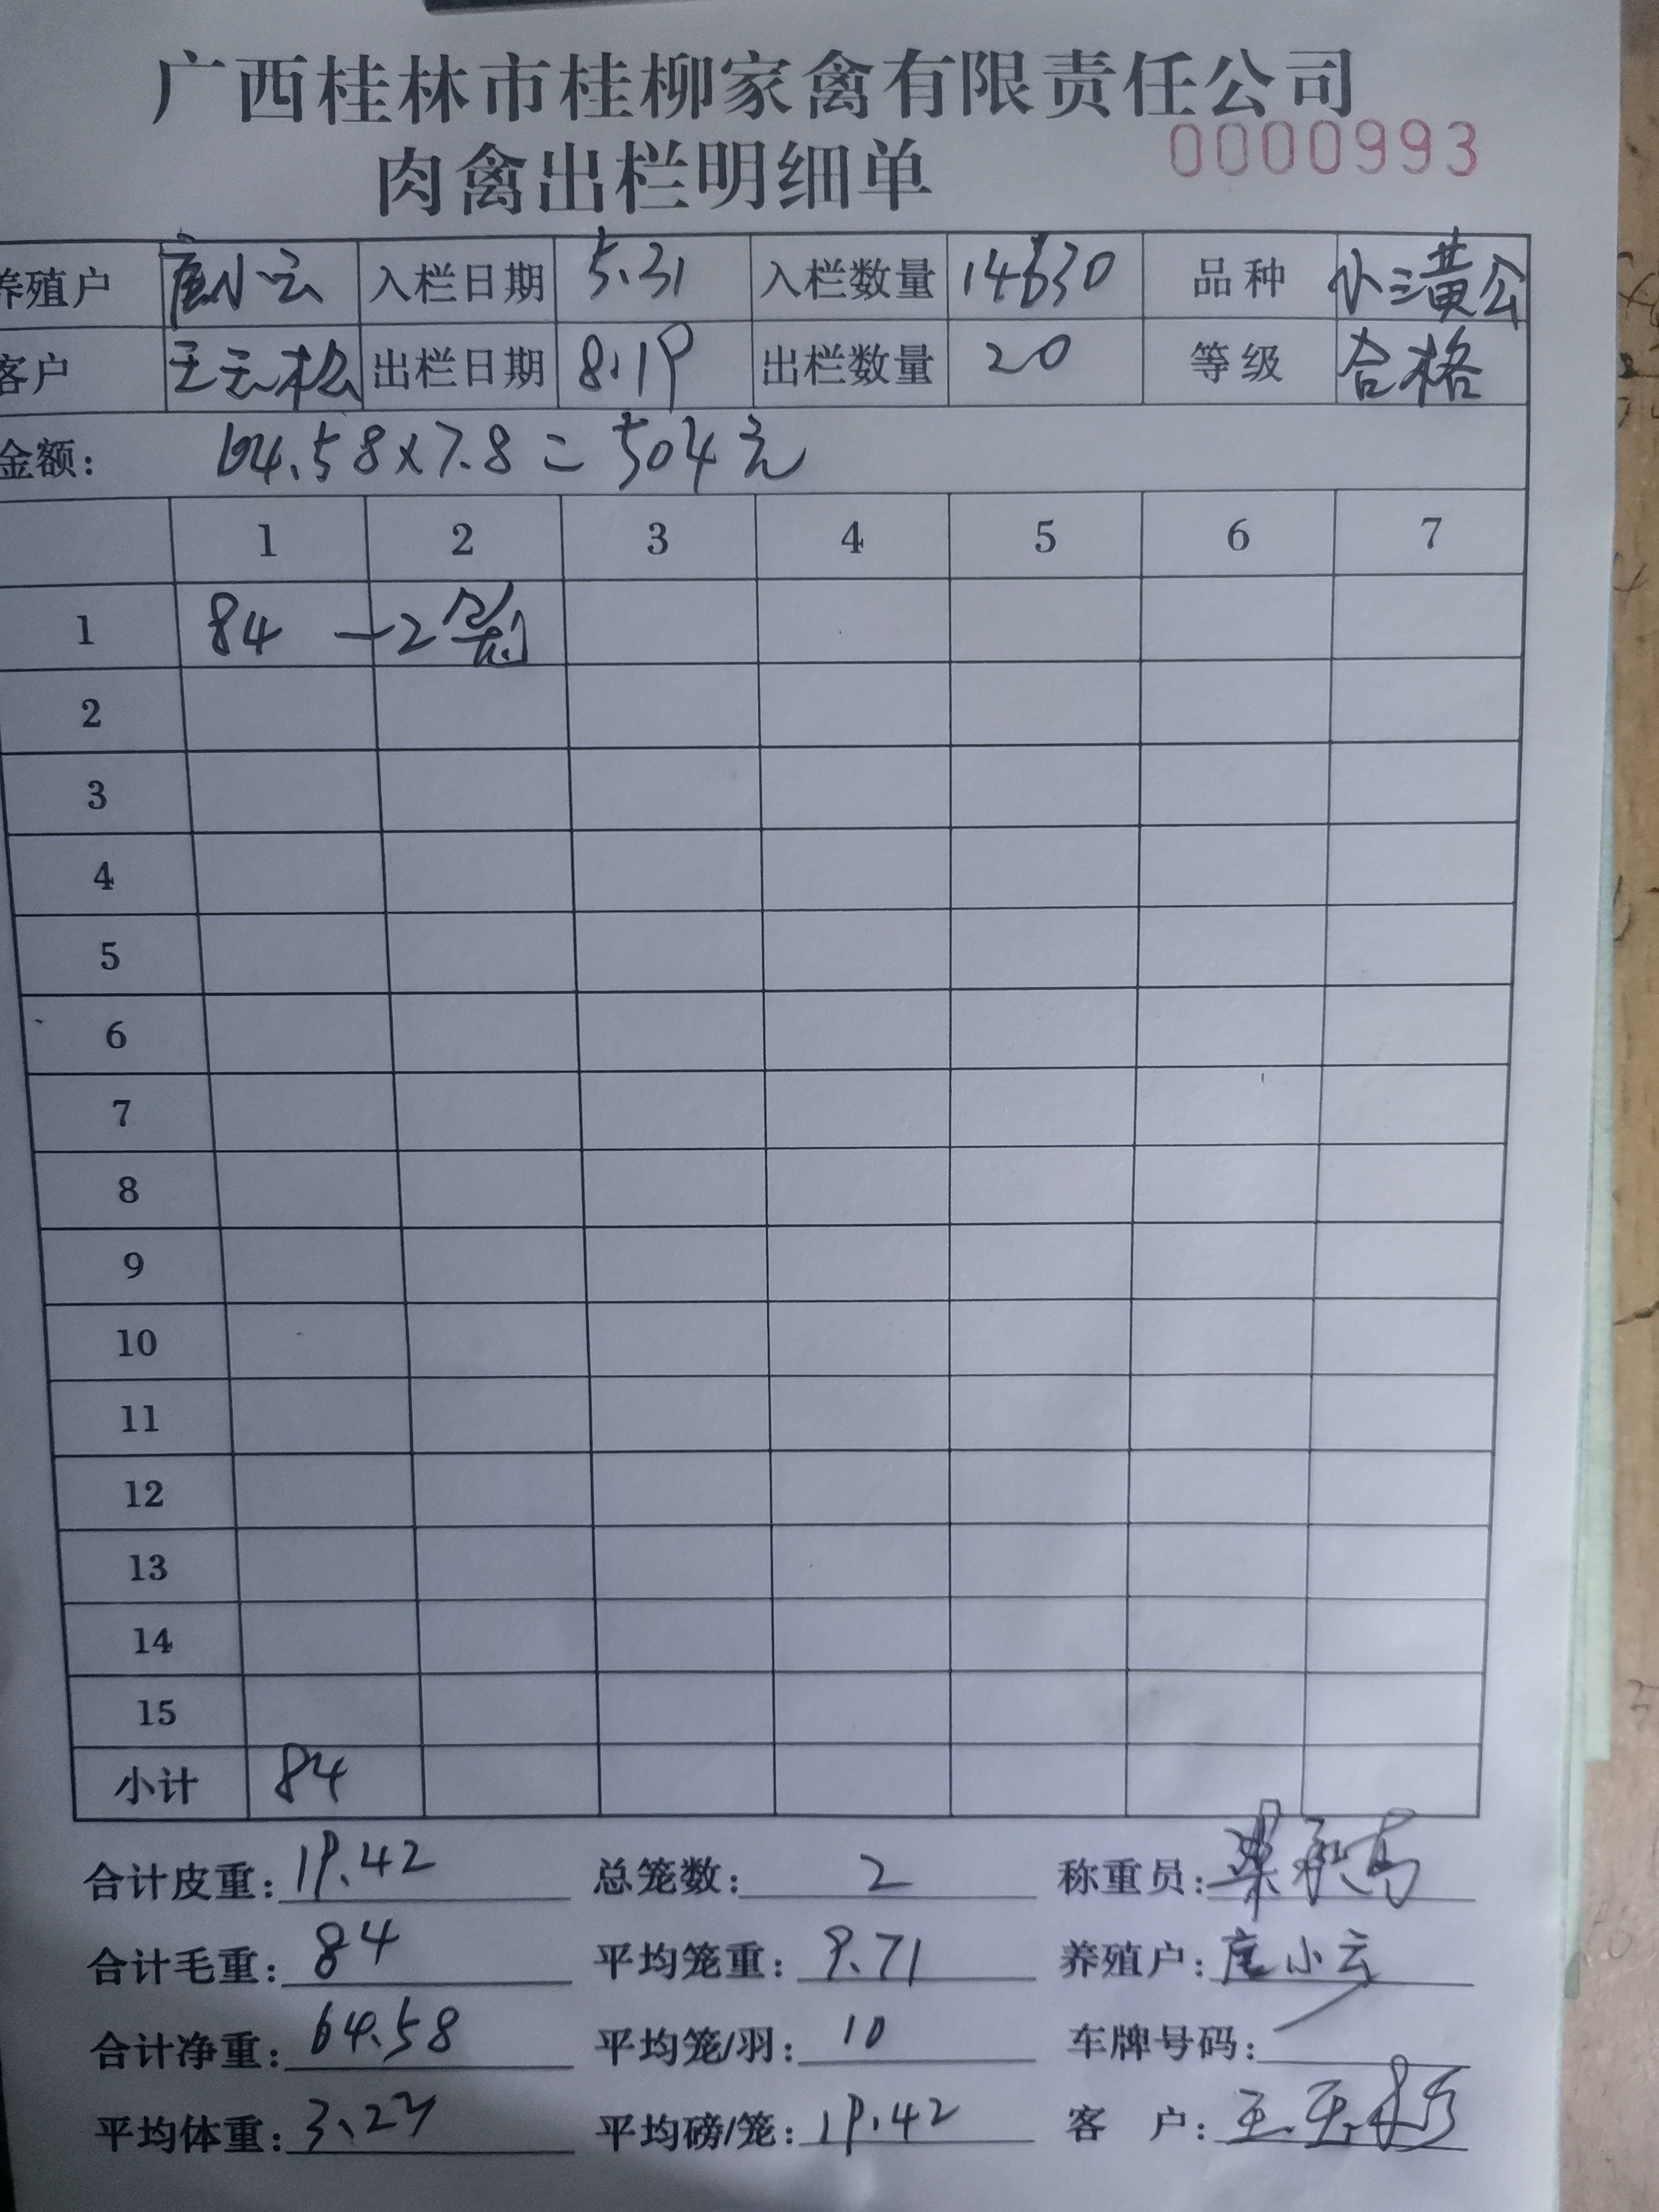 广西桂林市桂柳家禽有限责任公司
肉禽出栏明细单 0000993
养殖户 唐小云 入栏日期 5.31 入栏数量 14630 品种 小三黄公
客户 王云松 出栏日期 8.19 出栏数量 20 等级 合格
金额: 64.58×7.8=504元
1 2 3 4 5 6 7
1 84 —2笼
2
3
4
5
6
7
8
9
10
11
12
13
14
15
小计 84
合计皮重: 19.42 总笼数: 2 称重员:
合计毛重: 84 平均笼重: 9.71 养殖户: 唐小云
合计净重: 64.58 平均笼/羽: 10 车牌号码:
平均体重: 3.23 平均磅/笼: 19.42 客户: